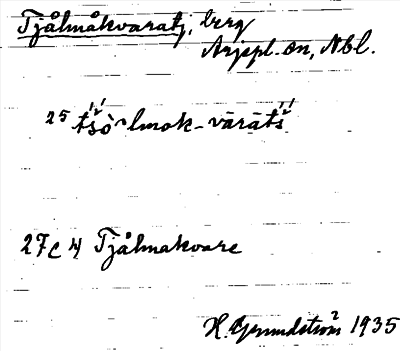 Tjålmåkvaratj, berg
Arjepl. sn, Nbl.
25 tśò̀lmok-vārātś
27C 4 Tjålmakvare
H. Grundström 1935